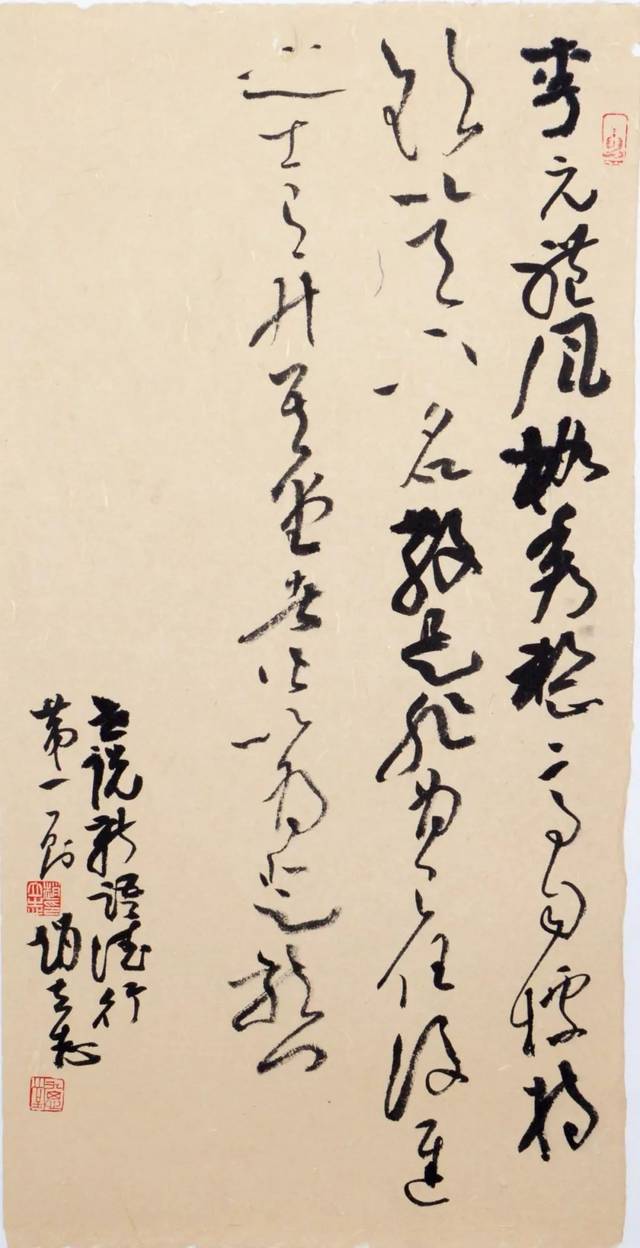 李元禮風格秀整高自標持
欲以天下名教是非為己任後進
之士有升其堂者皆以為登龍門
世說新語德行
第一則 趙